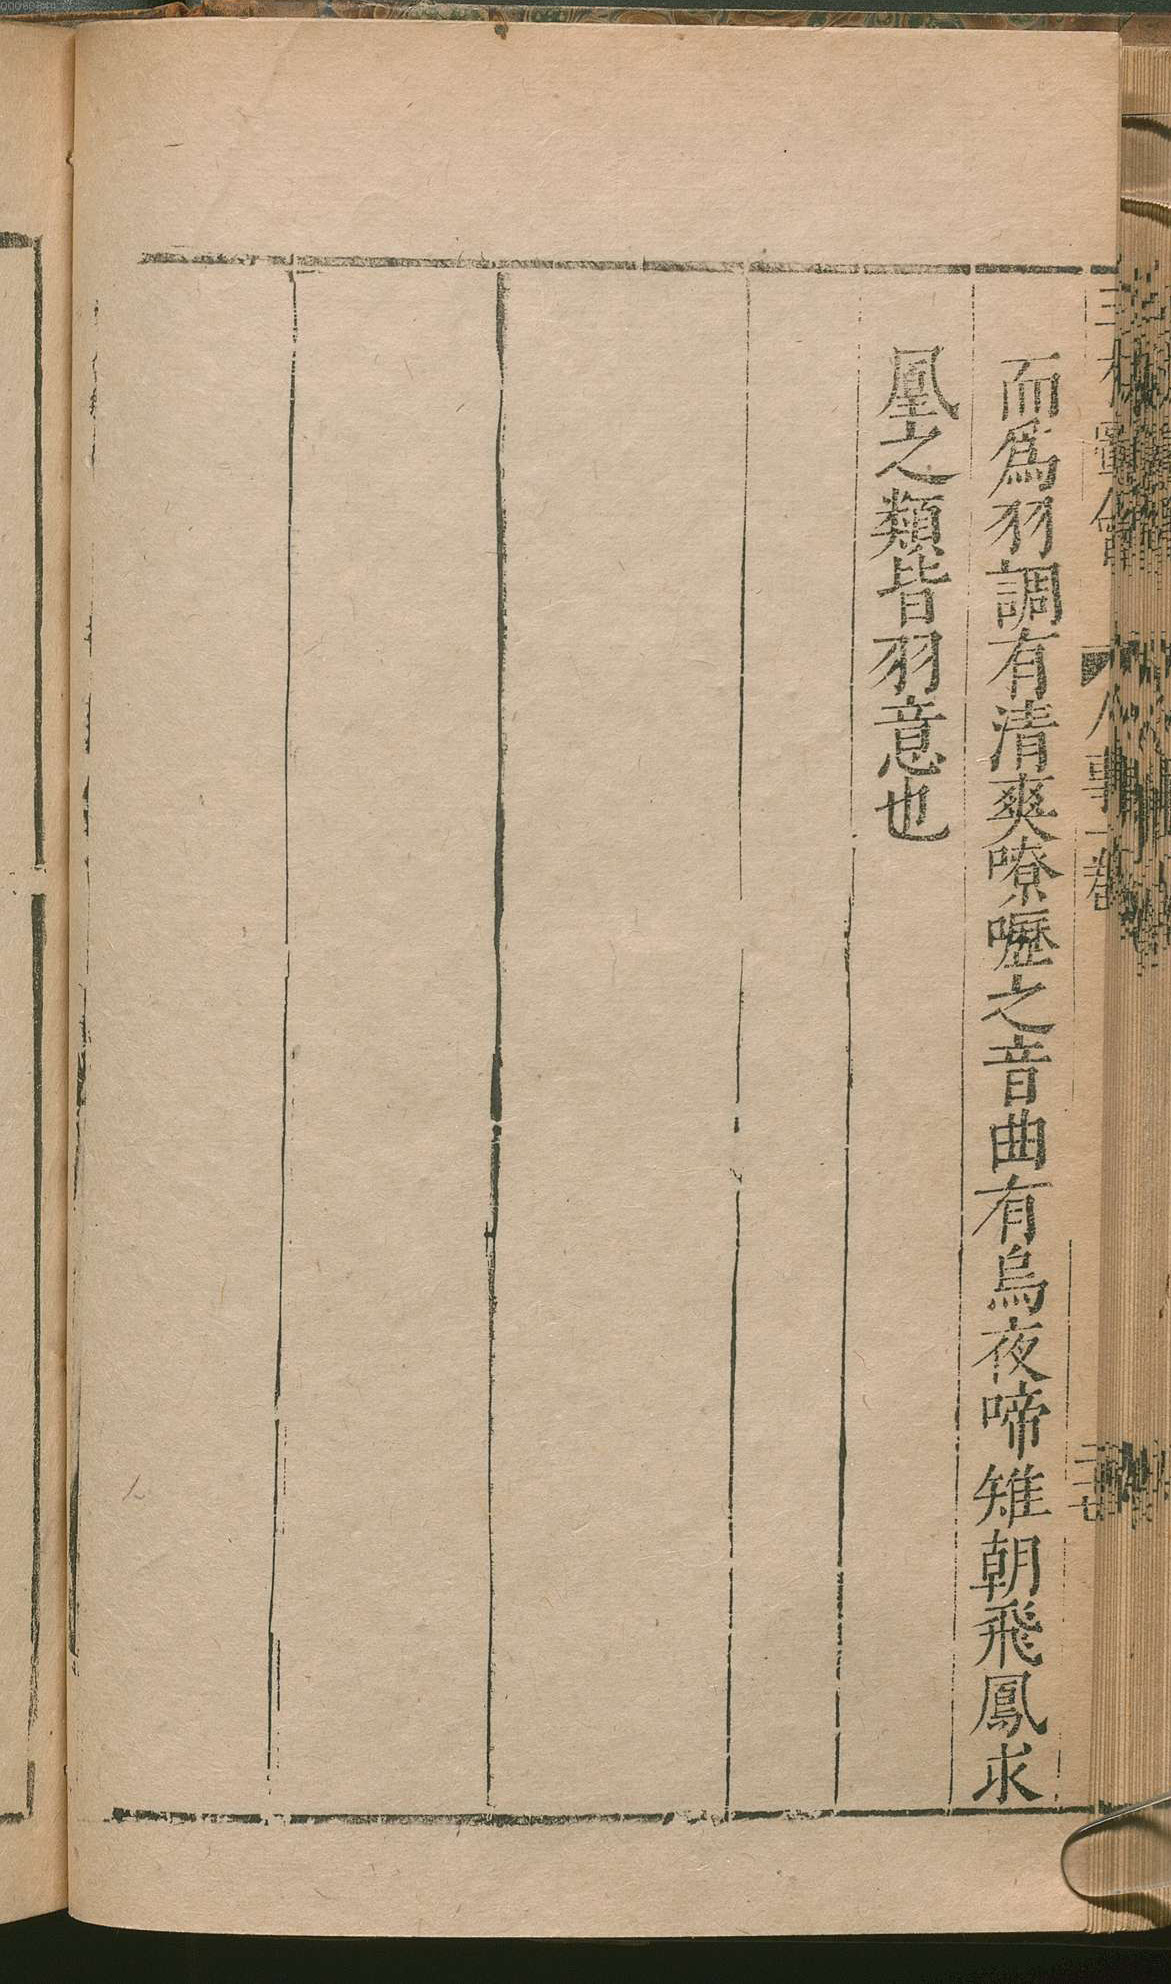 而爲羽調有清爽嘹嚦之音曲有烏夜啼雉朝飛鳳求
凰之類皆羽意也